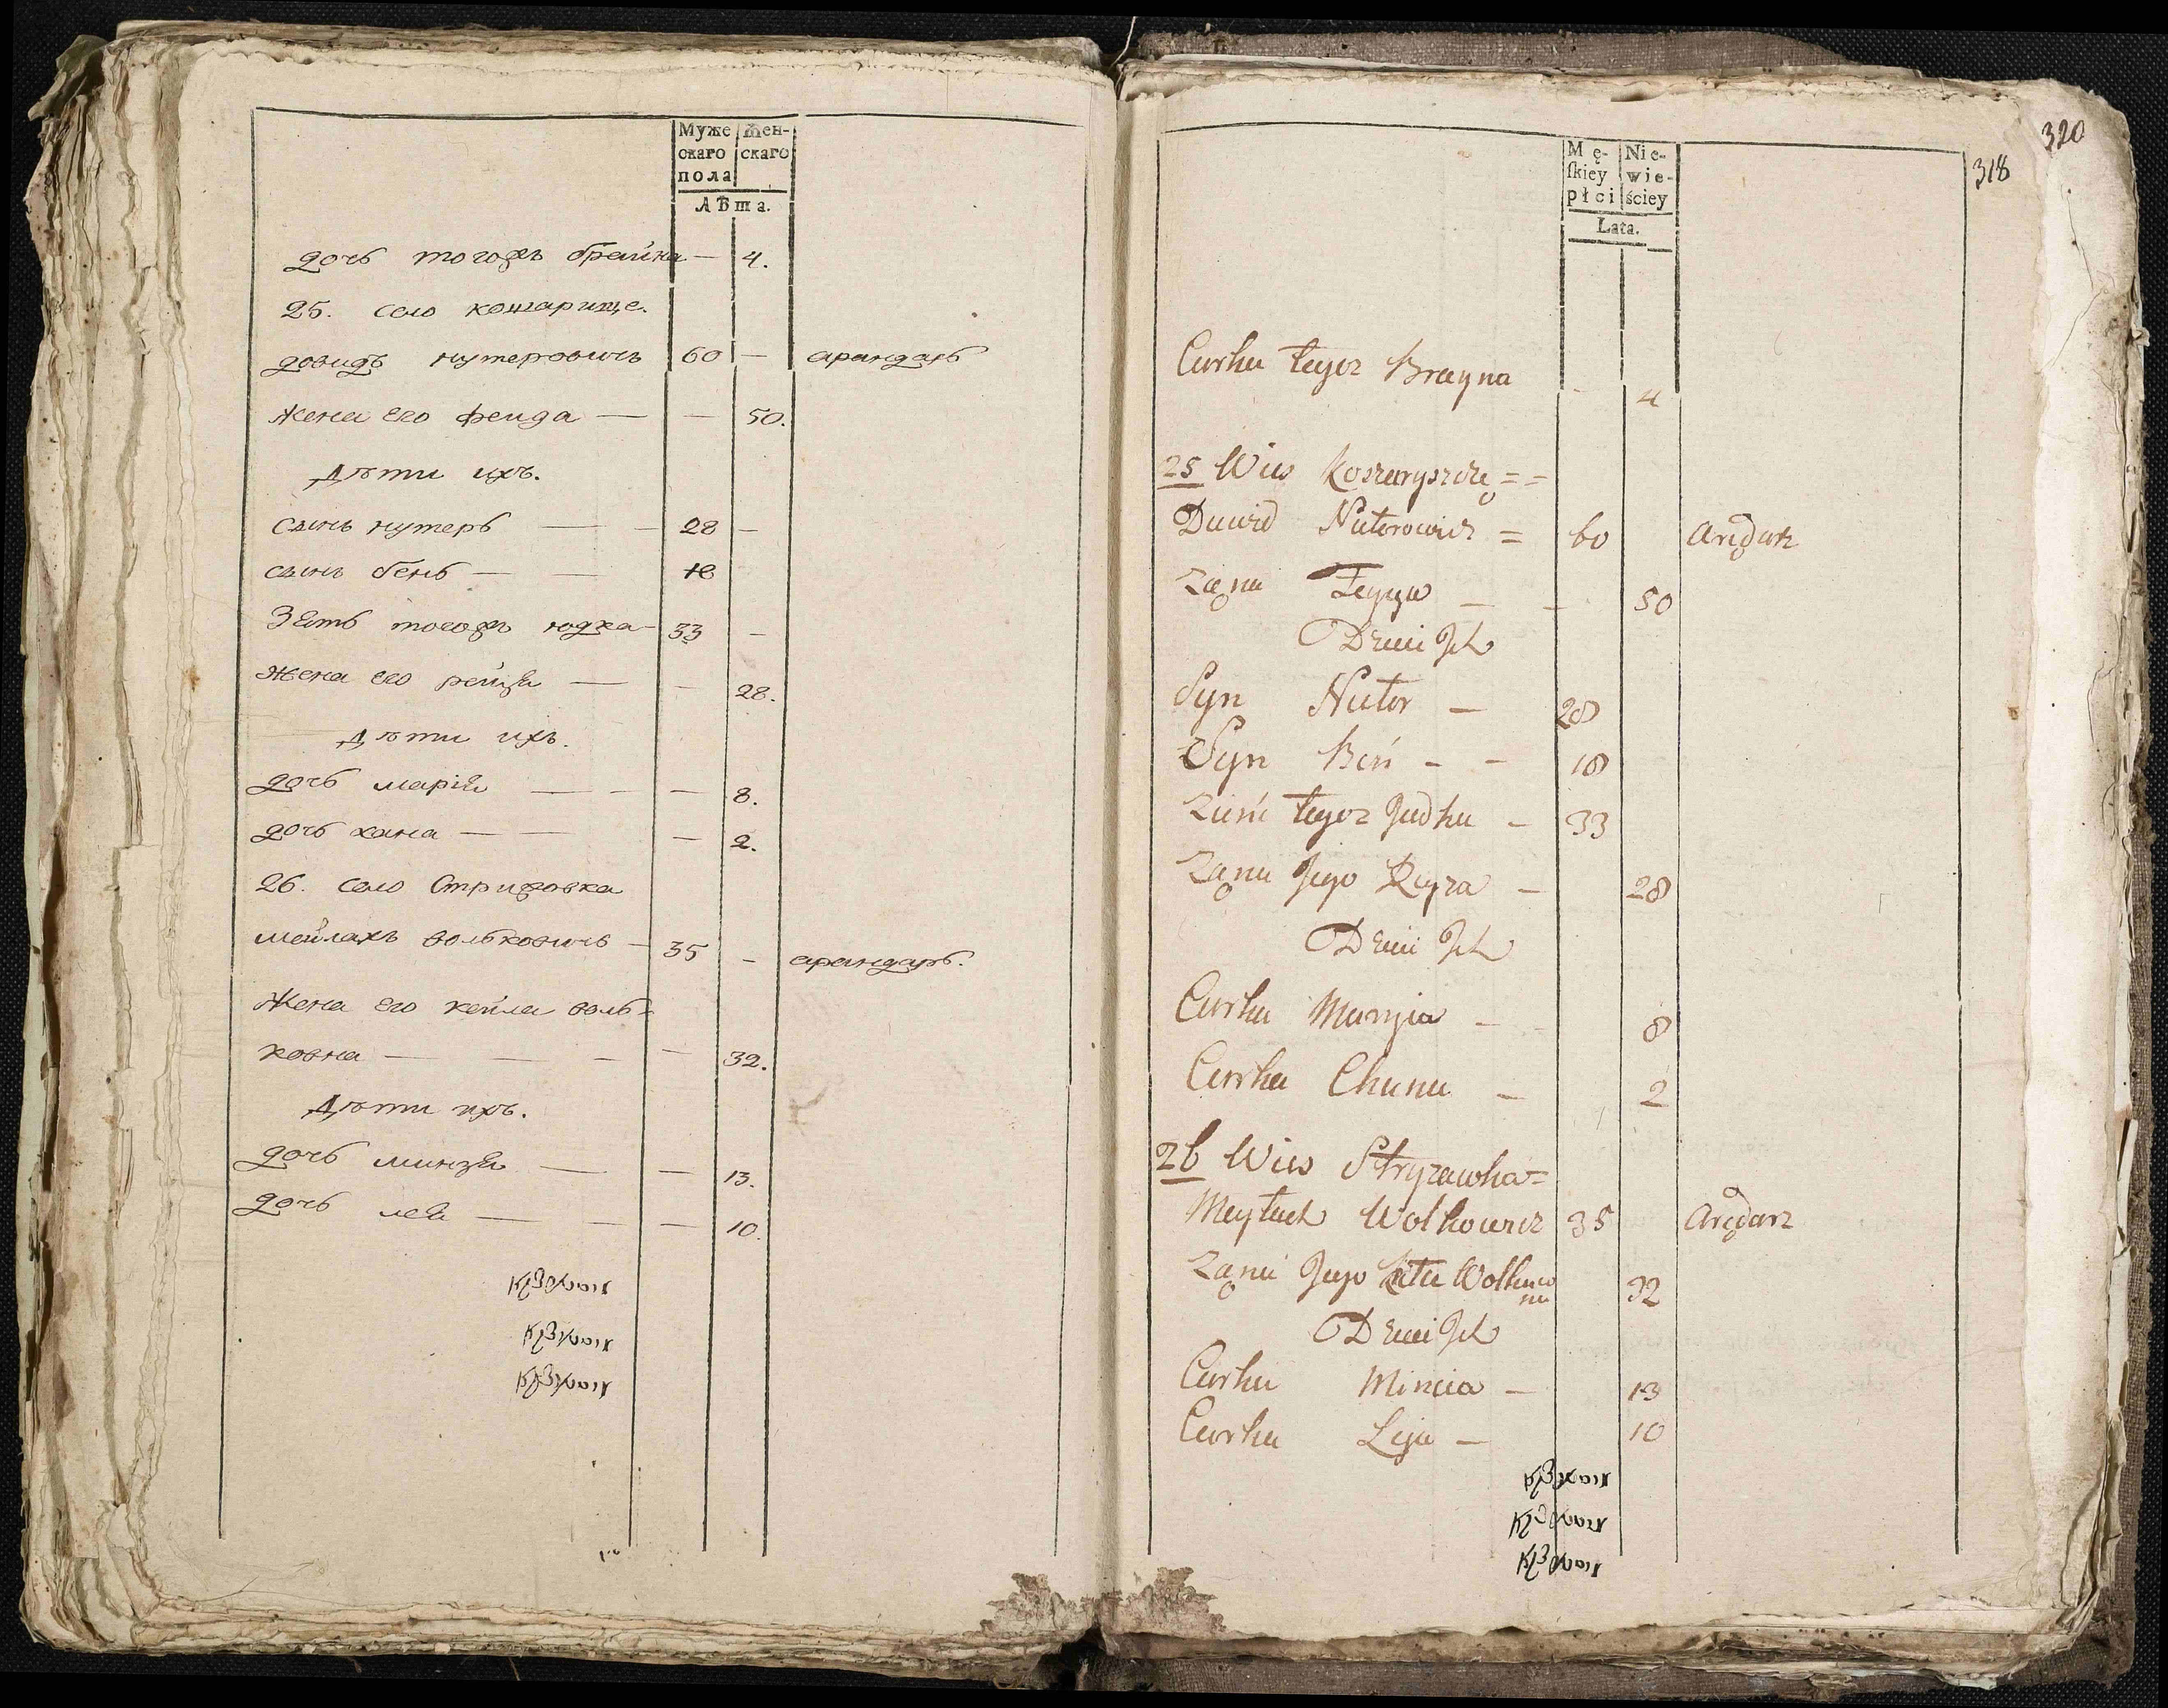 Муже
скаго
пола
Жен-
скаго
Лѣта.
дочь тогожъ брайна — 4.
25. село кошарище.
довидъ нутеровичъ 60 — арандарь
жена его фейда — — 50.
Дѣти ихъ.
сынъ нутеръ — — 28 —
сынъ бень — — 18
Зять тогожъ юдка — 33 —
жена его рейзя — — 28.
Дѣти ихъ.
дочь марія — — — 8.
дочь хана — — — 2.
26. село Стрижовка
мейлахъ вольковичь — 35 — арандарь.
Жена его кейла воль-
ковна — — — — 32.
Дѣти ихъ.
дочь минзя — — 13.
дочь лея — — — 10.
320
318
Mę-
ſkiey
płci
Nie-
wie-
ściey
Lata.
Curka tegoz Brayna - 4
25 Wies Koszaryszcze = =
Dawid Nuterowicz = 60 Aredarz
Zona — — 50
Dzieci Ich
Syn Nuter — 28
Syn Beń - - 18
Zieńć tegoz Judka — 33
Zona Jego Reyza — 28
Dzieci Ich
Curka Maryia — 8
Curka Chana — 2
26 Wies Stryzawka =
Meyłach Wolkowicz 35 Aredarz
Zona Jego Wolkow
na 32
Dzieci Ich
Curka Mincia — 13
Curka Leja — 10